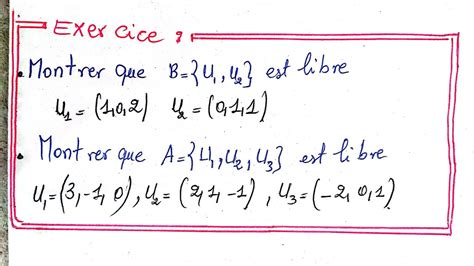 Exercice :
• Montrer que B={U₁,U₂} est libre
U₁=(1,0,2) U₂=(0,1,1)
• Montrer que A={U₁,U₂,U₃} est libre
U₁=(3,-1,0), U₂=(2,1,-1), U₃=(-2,0,1)